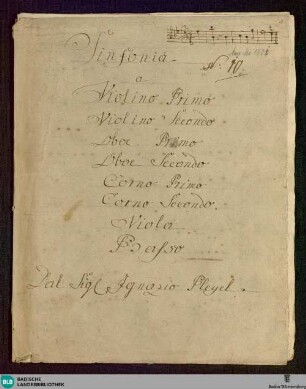 Sinfonia
N: 10.
a
Violino Primo
Violino Secondo
Oboe Primo
Oboe Secondo
Corno Primo
Corno Secondo.
Viola
Basso
Del Sigl: Ignazio Pleyel.
BLB
BADISCHE
LANDESBIBLIOTHEK